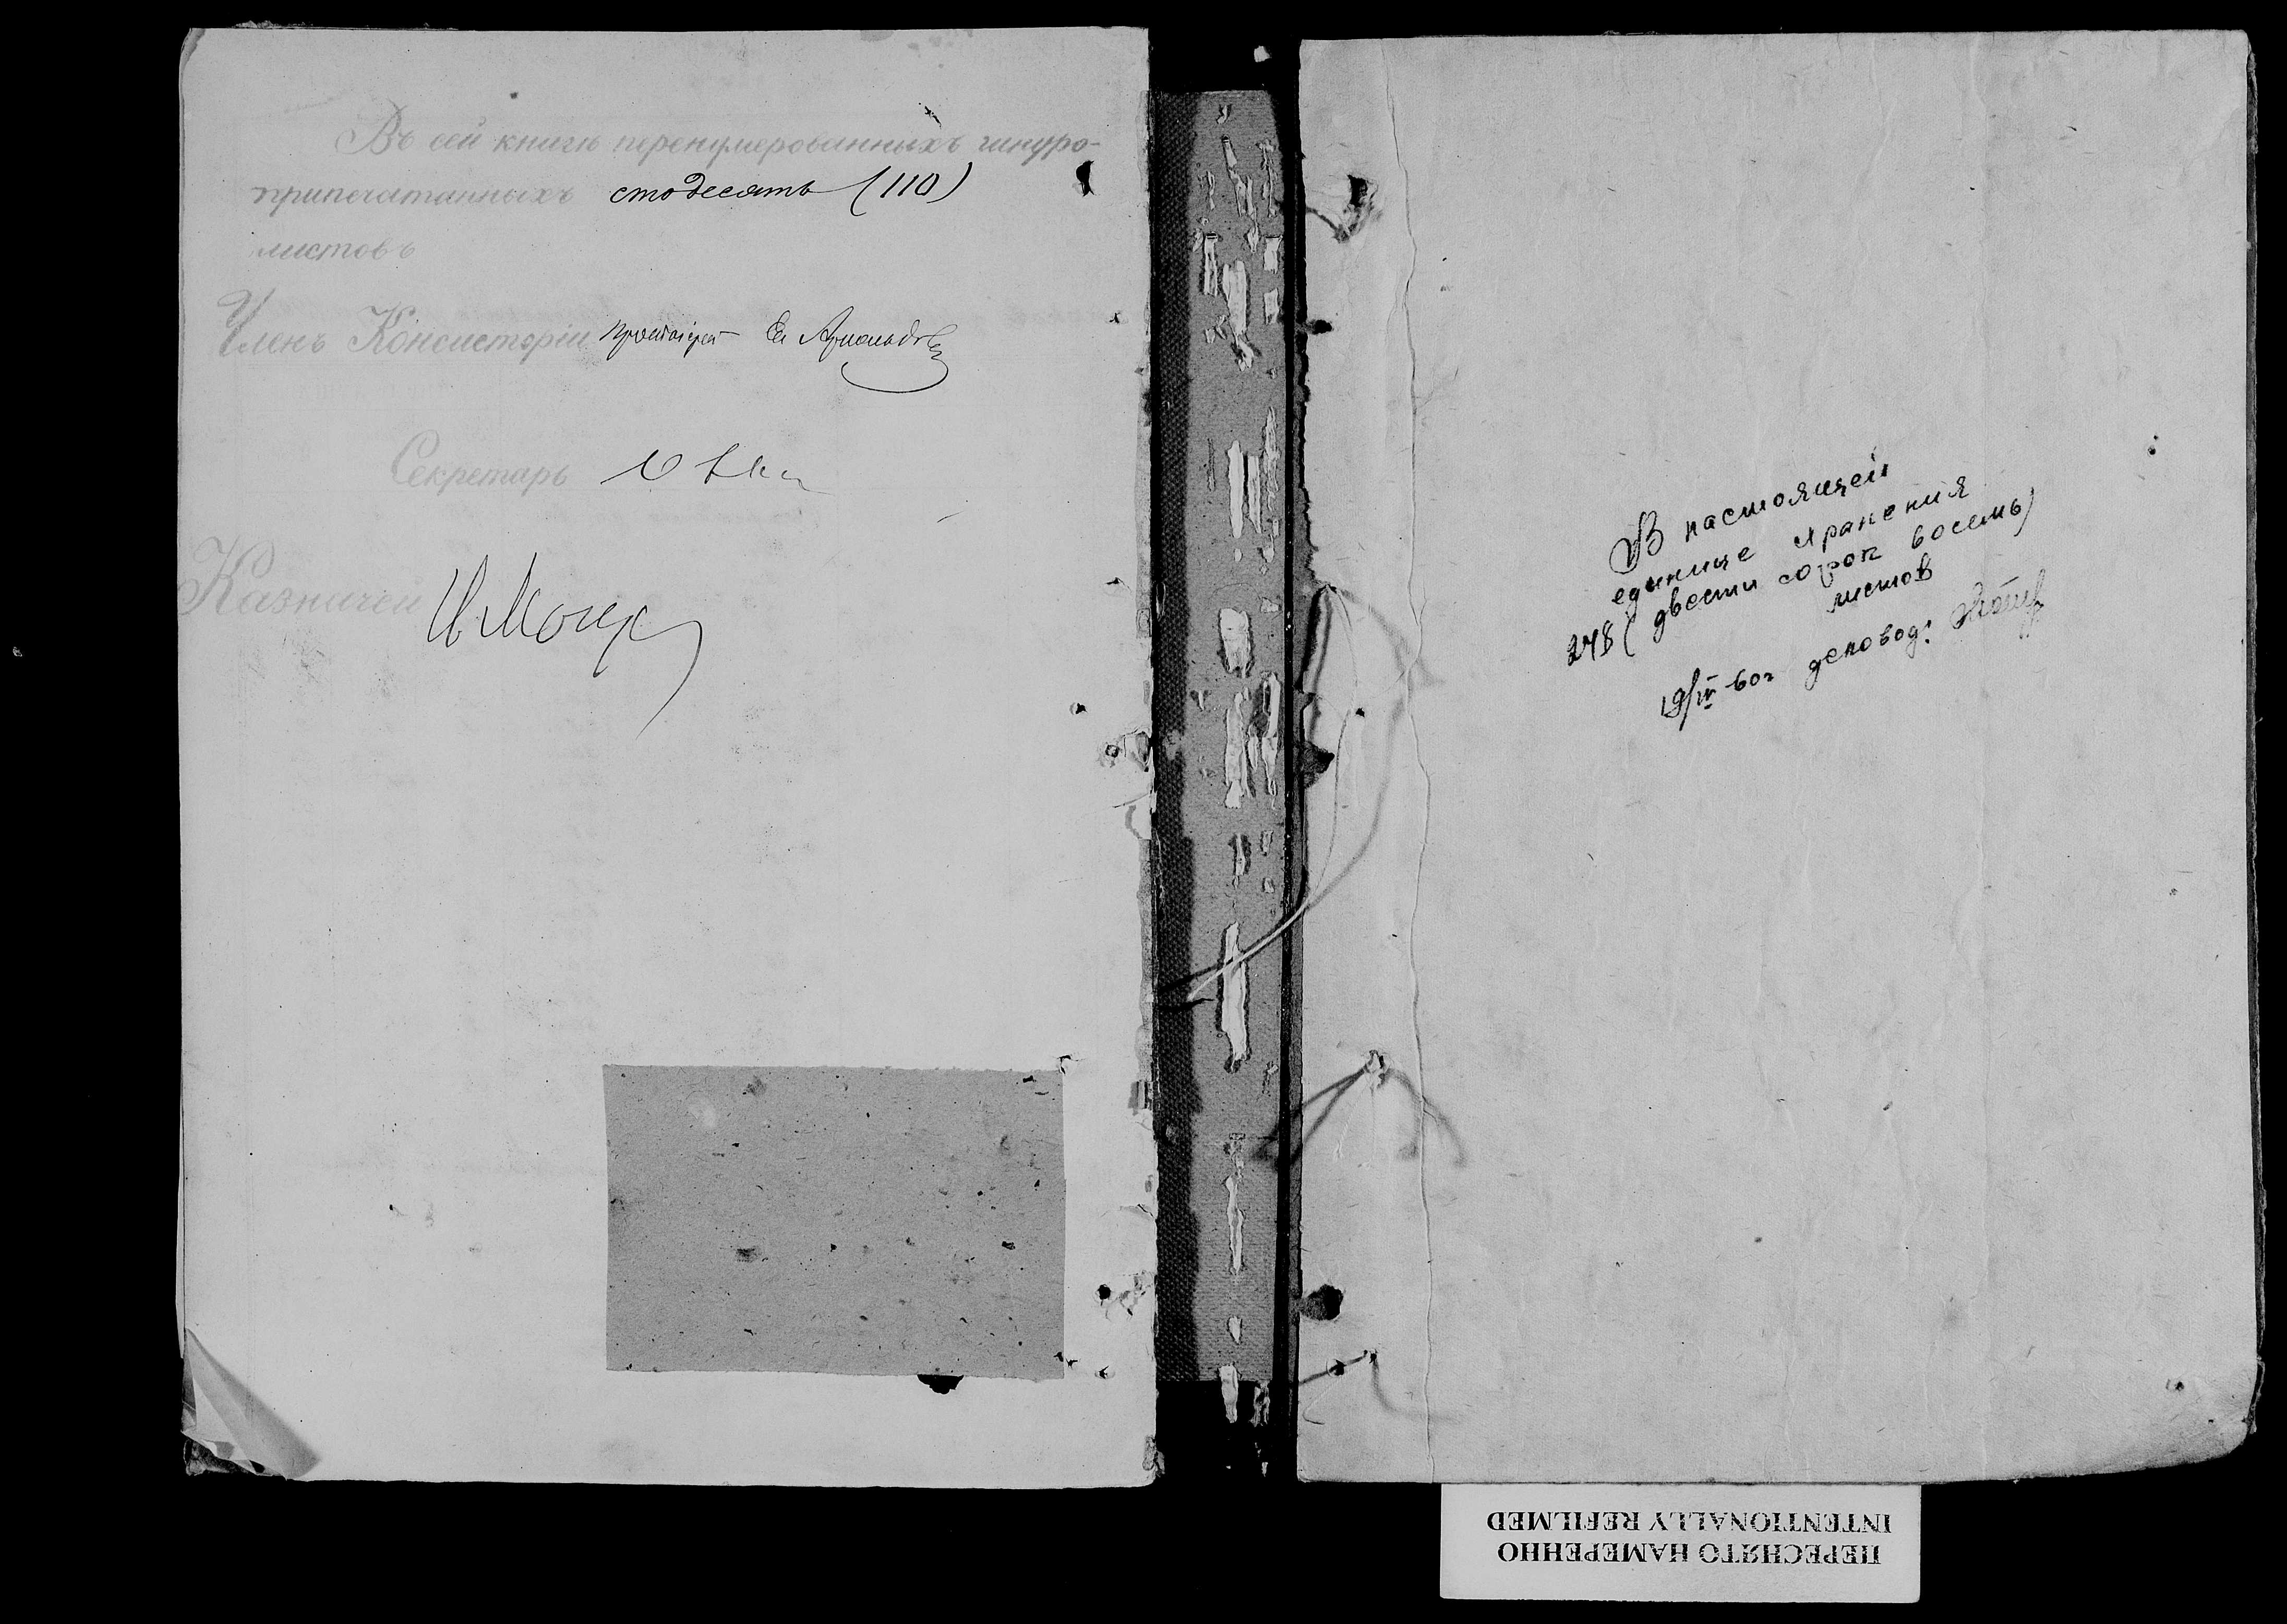 Въ сей книгѣ перенумерованныхъ шнуро-
припечатанныхъ стодесять (110)
листовъ
Членъ Консисторіи протоіерей Ев
Секретарь
Казначей
В настоящей
единице хранения
248 (двести сорок восемь)
листов
19/IV-60г деловод:
ПЕРЕСНЯТО НАМЕРЕННО
INTENTIONALLY REFILMED